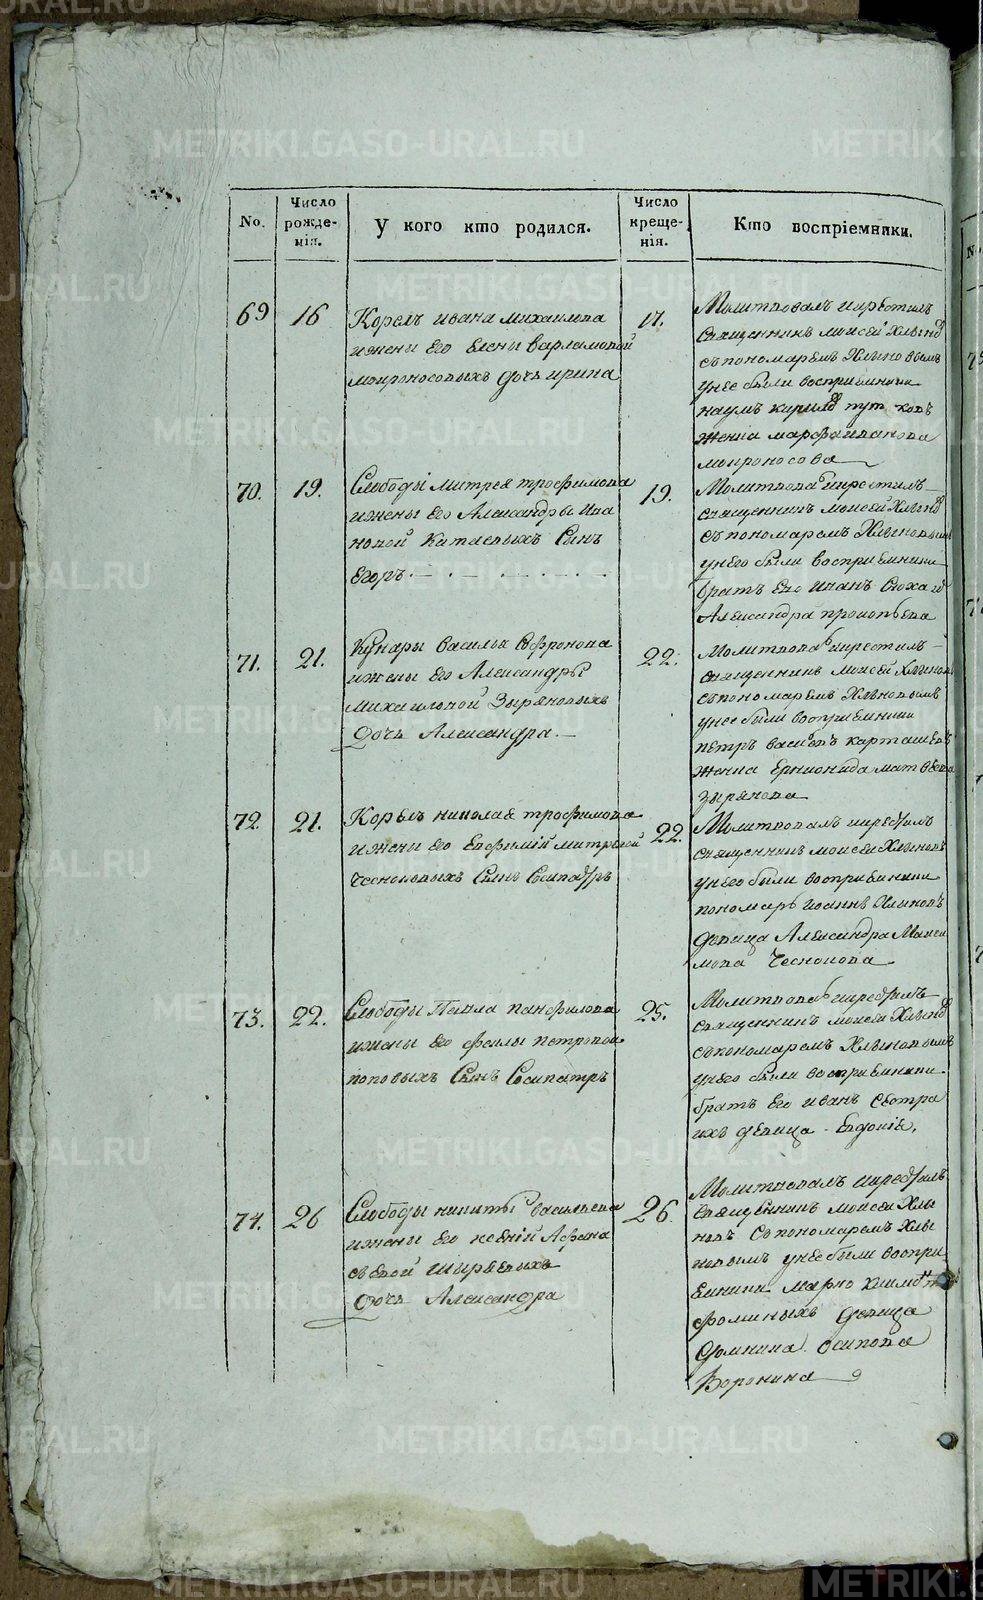 METRIKI.GASO-URAL.RU
No.
Число рожде-нія.
У кого кто родился.
Число креще-нія.
Кто воспріемники.
69
16
Корелъ ивана михаилова
ижены его Елены варламовой
мокроносовыхъ дочь ирина
17.
Молитвовалъ икрестилъ
священникъ моисей Хлынов
съпономаремъ Хлыновымъ
унее были восприемники
наумъ кирилов
женка марфа иванова
мокроносова
70.
19.
Слободы митрея трофимова
ижены его Александры Ива
новой Катаевыхъ Сынъ
Егоръ
19.
Молитвовал икрестилъ
священникъ моисей Хлынов
съпономаремъ Хлыновымъ
унего были восприемники
братъ его иванъ
Александра прокопьева
71.
21.
Кунары василья Софронова
ижены его Александры
михаиловой Зыряновыхъ
Дочь Александра.
22.
Молитвовал икрестилъ
священникъ моисей Хлынов
съпономаремъ Хлыновымъ
унее были восприемники
петръ васильевъ карташевъ
женка матвеева
зырянова
72.
21.
Корелъ николая трофимова
ижены его Евфимии митревой
Чесноковыхъ Сынъ Сосипатръ
22.
Молитвовалъ икрестилъ
священникъ моисей Хлыновъ
унего были восприемники
пономарь иоаннъ Хлыновъ
девица Александра Макси
мова Чеснокова
73.
22.
Слободы Павла панфилова
ижены его феклы петровой
поповыхъ Сынъ Сосипатръ
25.
Молитвовал икрестилъ
священникъ моисей Хлынов
съпономаремъ Хлыновымъ
унего были восприемники
братъ его иванъ Сестра
ихъ девица Евдокия.
74.
26
Слободы никиты васильева
ижены его ксении Афана
сьевой Ширяевыхъ
Дочь Александра
26.
Молитвовалъ икрестилъ
священникъ моисей Хлы
новъ Съпономаремъ Хлы
новымъ унее были воспри
емники марко
фоминыхъ девица
Домнина осипова
Воронина